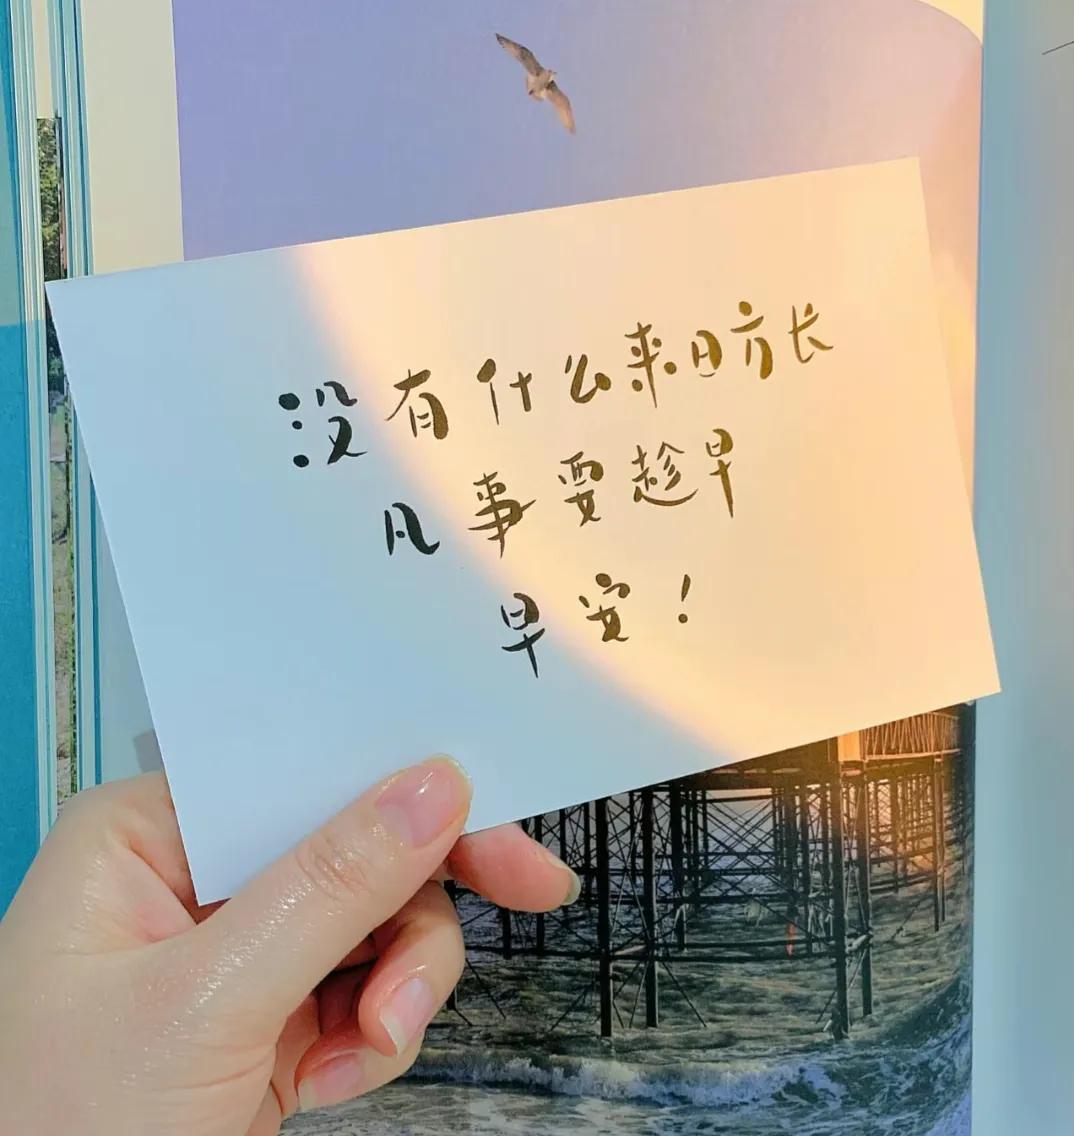 没有什么来日方长
凡事要趁早
早安！